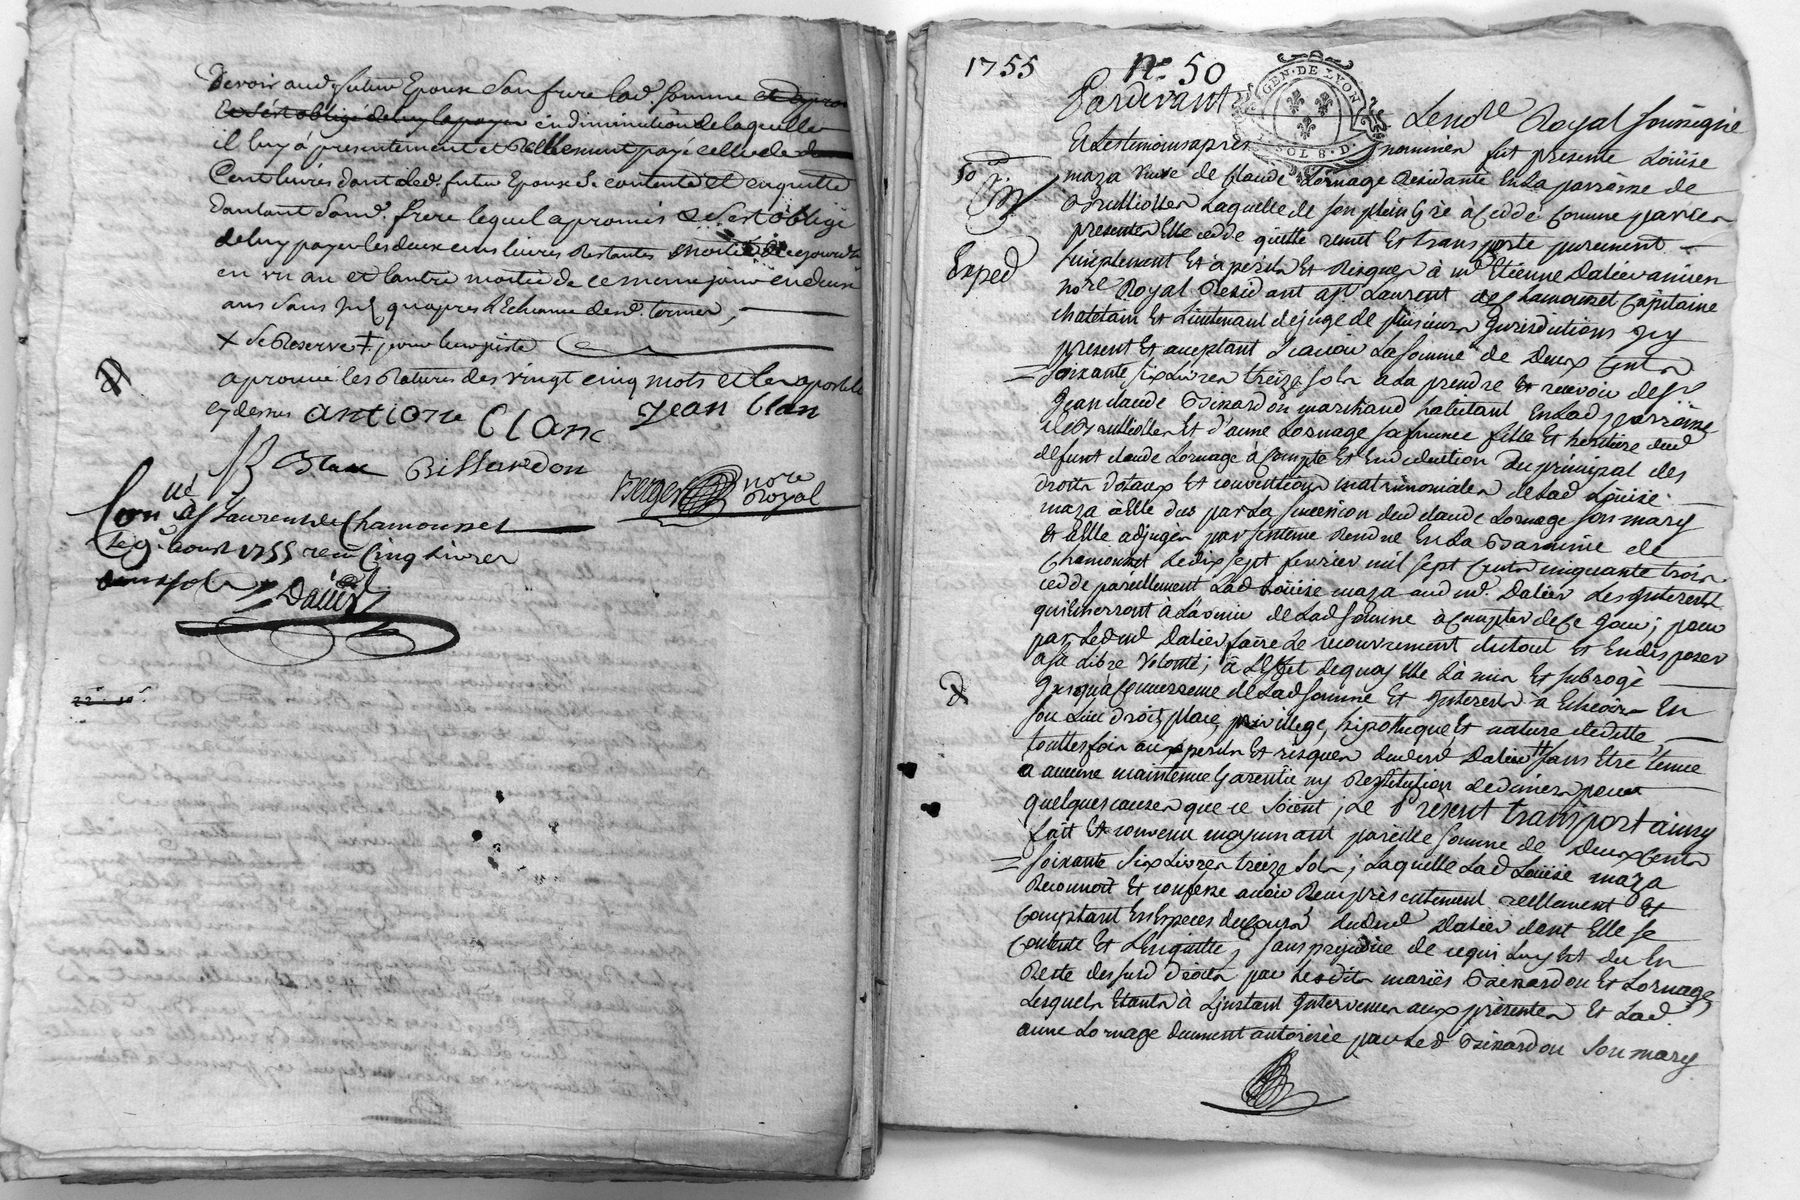 devoir aud. futur Epoux Son frere lad. Somme et a promis
et s'est obligé de luy la payer en diminution de laquelle
il luy a presentement et Réellement payé celle de
Cent livres dont led. futur Epoux Se contente et en quitte
dautant Sond. frere lequel a promis & s'est obligé
de luy payer les deux cens livres Restantes moitié de ce jourd'huy
en un an et l'autre moitié de ce meme jour en deux
ans Sans Int. qu'apres l'Echeance desd. termes,
x Se Reserve
aprouvé les Ratures des vingt cinq mots et l'apostille
cy dessus antione Clanc Jean Clan
Blanc Bissardon
Berger nore Royal
Con.lé a St Laurent de Chamousset
le 9e. aoust 1755 reçu Cinq Livres
douze sols Dalier
22# 10s.
1755 n° 50
GEN. DE LYON
SOL 8. D.
Pardevant Le nore Royal soussigné
Et Les temoins apres nommés fut presente Loüise
50
maza veuve de Claude Lornage Residante En La parroisse de
Brullioles Laquelle de son plein Gré à Cedé Comme par ces
presentes Elle cedde quitte remet Et transporte purement
Exped
simplement Et a perils Et Risques à me. Etienne Dalier ancien
nore Royal Residant a St Laurent de Chamousset Capitaine
chatelain Et Lieutenant de juge de plusieurs Jurisdictions Icy
present Et acceptant Scavoir La somme de Deux Cents
soixante six Livres treize sols a La prendre Et recevoir de Sr
Jean claude Bissardon marchand habitant En Lad parroisse
de Brullioles Et d'anne Lornage sa femme fille Et heritiere dud
defunt claude Lornage à Compte Et En deduction du principal des
droits dotaux Et conventions matrimoniales de Lad Loüise
maza à Elle dus par La succession dud claude Lornage son mary
Et a Elle adjugés par sentence Rendue En La Baronnie de
Chamousset Le dix sept fevrier mil sept Cents cinquante trois
cedde pareillement Lad Loüise maza aud me. Dalier Les Interests
qui Courront à L'avenir de Lad somme à compter de Ce jour; pour
par Led me Dalier faire Le recouvrement du tout Et En disposer
a sa Libre volonté; à L'Effet de quoy Elle L'à mis Et subrogé
Jusqu'à Concurrence de Lad somme Et Interests à Echeoir En
son Lieu droit, place, privillege, hypotheque, Et nature de dette
touttes fois aux perils Et risques dud me Dalier sans Etre tenue
a aucune maintenue Garentie ny Restitution de deniers pour
quelques causes que ce soient; Le Present transport ainsy
fait Et convenu moyennant pareille somme de deux Cents
soixante six Livres treize sols; Laquelle Lad Loüise maza
Reconnoit Et confesse avoir Reçu presentement reellement Et
Comptant En Especes de Cours dud me Dalier dont Elle se
Contente Et L'Enquitte; sans prejudice de ce qui Luy Est du En
Reste de ses susd Droits par Lesdits mariés Bissardon Et Lornage,
Lesquels Etants à L'instant Intervenus aux presentes Et Lad.
anne Lornage duement autorisée par Led Bissardon son mary